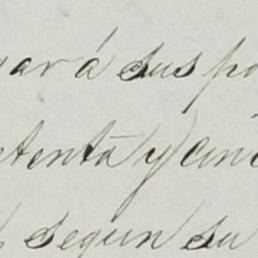 ará sus po
tenta y cinc
segun su